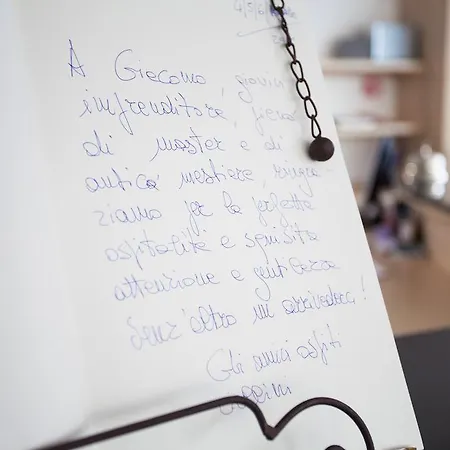 4/5/6
A Giacomo, giovin
imprenditore, fiero
di master e di
antico mestiere, ringra-
ziamo per la perfetta
ospitalità e squisita
attenzione e gentilezza
Senz'altro un arrivederci!
Gli amici ospiti